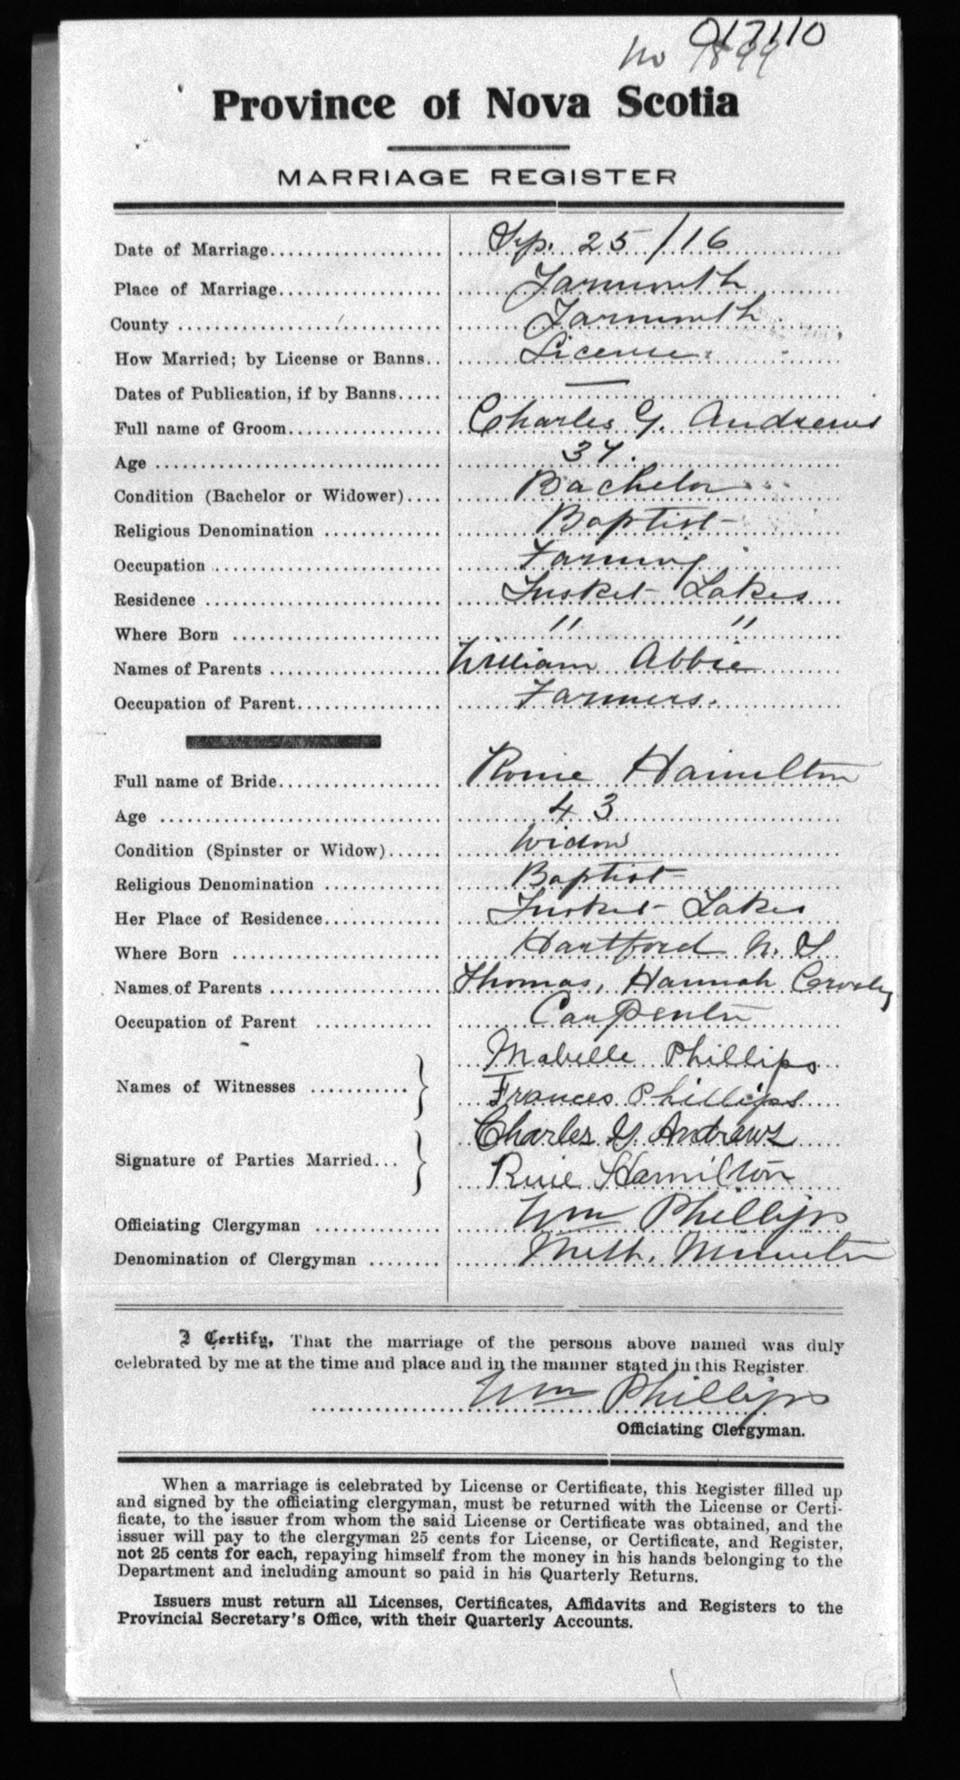 017110
No 1899
Province of Nova Scotia
MARRIAGE REGISTER
Date of Marriage Sep. 25/16
Place of Marriage Yarmouth
County Yarmouth
How Married; by License or Banns License
Dates of Publication, if by Banns —
Full name of Groom Charles Y. Andrews
Age
Condition (Bachelor or Widower) Bachelor
Religious Denomination Baptist
Occupation Farming
Residence Tusket Lakes
Where Born " "
Names of Parents William Abbie
Occupation of Parent Farmers.
Full name of Bride Hamilton
Age 43
Condition (Spinster or Widow) Widow
Religious Denomination Baptist
Her Place of Residence Tusket Lakes
Where Born Hartford N. S
Names of Parents Thomas, Hannah Crosby
Occupation of Parent Carpenter
Mabelle Phillips
Names of Witnesses }
Frances Phillips
Charles Y. Andrews
Signature of Parties Married }
Hamilton
Officiating Clergyman Wm Phillips
Denomination of Clergyman Meth. Minister
I Certify, That the marriage of the persons above named was duly
celebrated by me at the time and place and in the manner stated in this Register.
Wm Phillips
Officiating Clergyman.
When a marriage is celebrated by License or Certificate, this Register filled up
and signed by the officiating clergyman, must be returned with the License or Certi-
ficate, to the issuer from whom the said License or Certificate was obtained, and the
issuer will pay to the clergyman 25 cents for License, or Certificate, and Register,
not 25 cents for each, repaying himself from the money in his hands belonging to the
Department and including amount so paid in his Quarterly Returns.
Issuers must return all Licenses, Certificates, Affidavits and Registers to the
Provincial Secretary's Office, with their Quarterly Accounts.